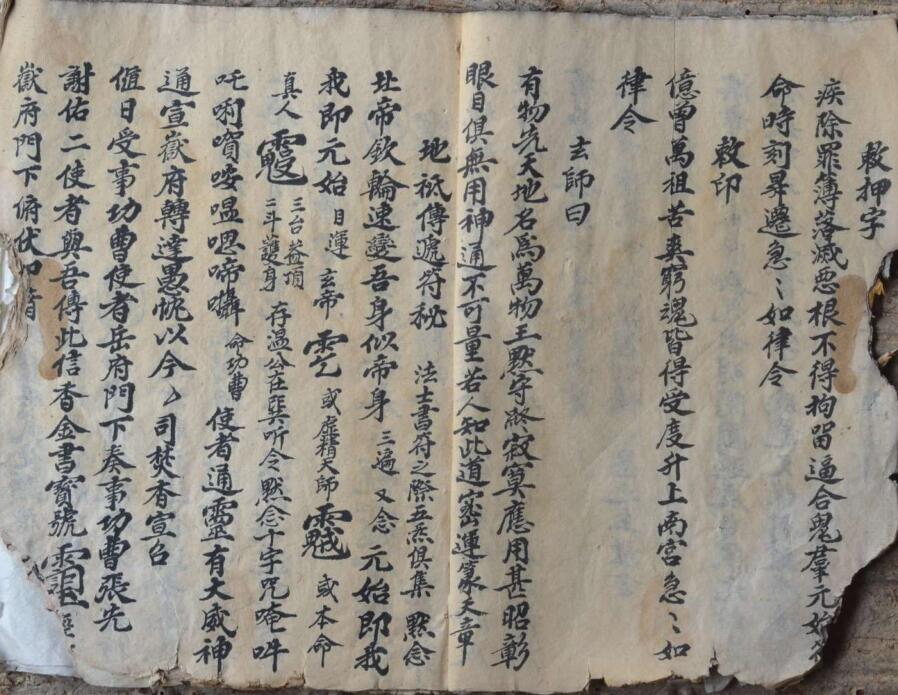 敕押字
疾除罪簿落滅惡根不得拘留逼合鬼羣元始符
命時刻昇遷急〻如律令
敕印
億曾萬祖苦爽窮魂皆得受度升上南宮急〻如
律令
玄師曰
有物先天地名為萬物王默守終寂寞應用甚昭彰
眼目俱無用神通不可量若人知此道密運篆天章
地祇傳遞符秘 法士書符之際五炁俱集 默念
北帝敕輪速變吾身似帝身 三遍 又念 元始即我
我即元始 目運 玄帝 或虛靖天師 或本命
真人 三台蓋頂 二斗護身 存溫公在巽听令默念十字咒唵吽
吒唎 嗢 啼囁 命功曹 使者通靈有大威神
通宣嶽府轉達愚悃以今〻司焚香宣召
值日受事功曹使者岳府門下奏事功曹張先
謝佑二使者與吾傳此信香金書寶號
嶽府門下俯伏